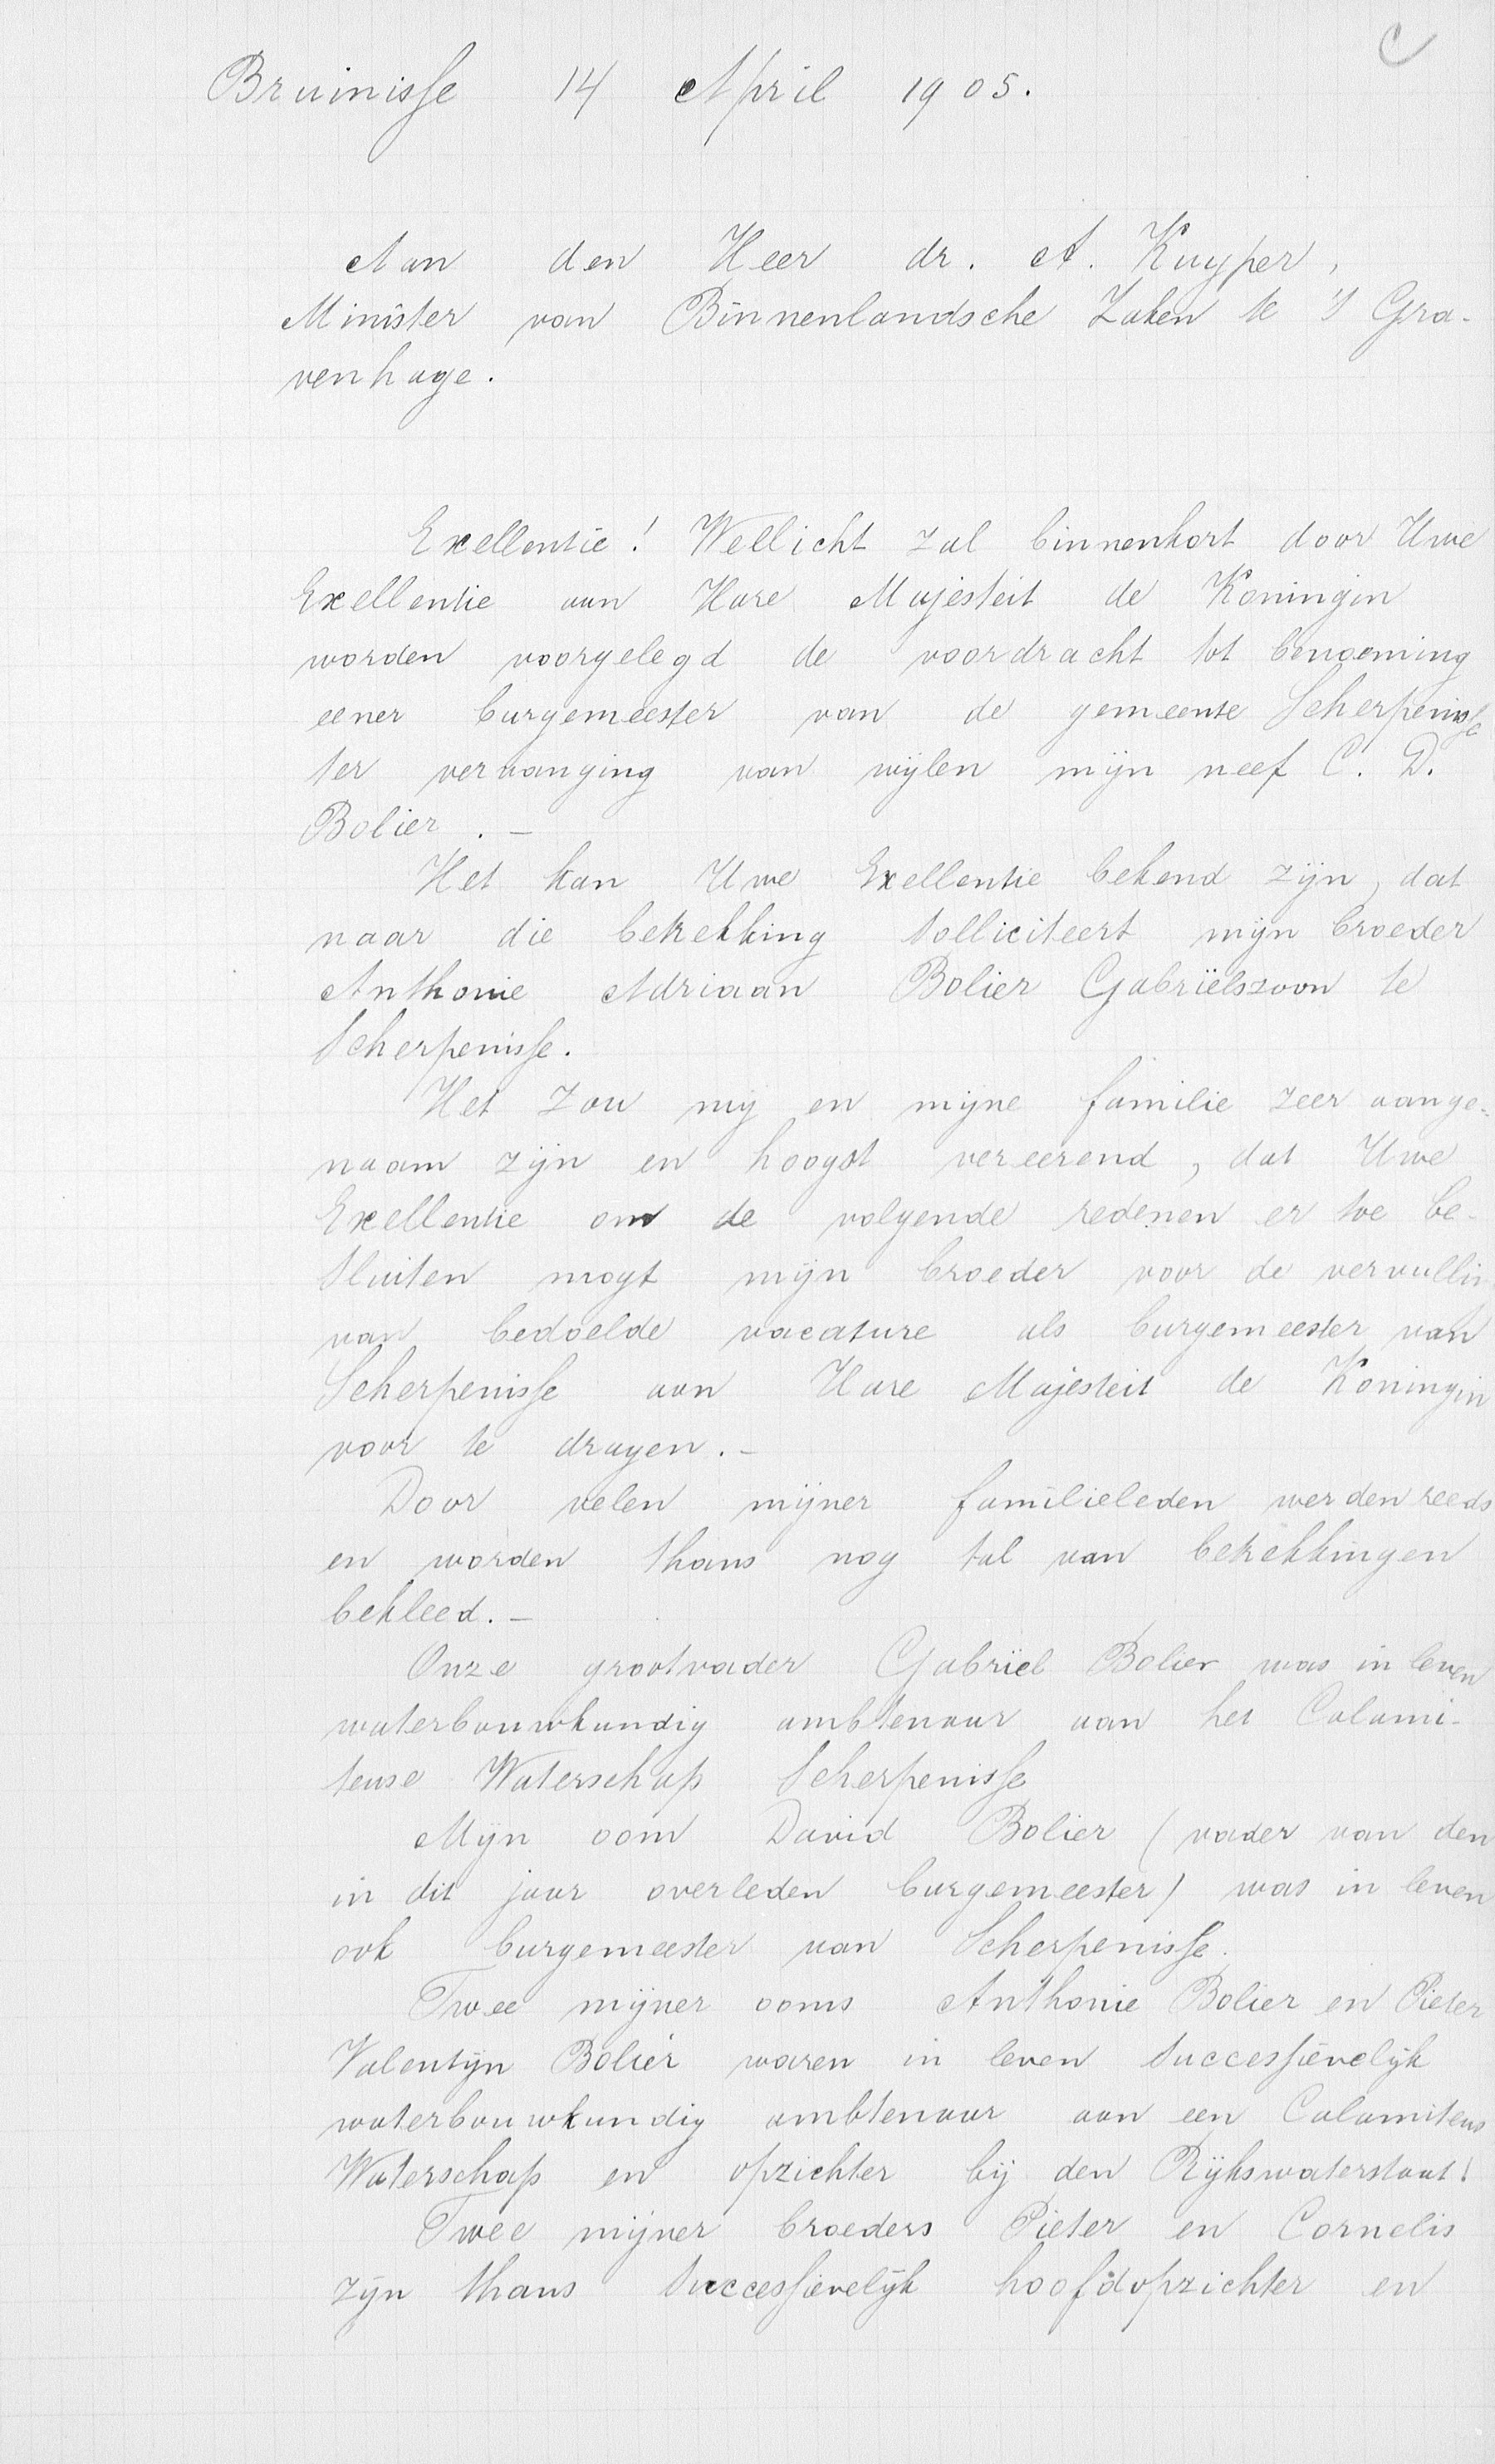 C
Bruinisse 14 April 1905.
Aan den Heer dr. A. Kuyper,
Minister van Binnenlandsche Zaken te 's Gra-
venhage.
Exellentie! Wellicht zal binnenkort door Uwe
Exellentie aan Hare Majesteit de Koningin
worden voorgelegd de voordracht tot benoeming
eener burgemeester van de gemeente Scherpenisse
ter vervanging van wijlen mijn neef C. D.
Bolier. -
Het kan Uwe Exellentie bekend zijn, dat
naar die betrekking solliciteert mijn broeder
Anthonie Adriaan Bolier Gabriëlszoon te
Scherpenisse.
Het zou mij en mijne familie zeer aange-
naam zijn en hoogst vereerend, dat Uwe
Exellentie om de volgende redenen er toe be-
sluiten mogt mijn broeder voor de vervullin
van bedoelde vacature als burgemeester van
Scherpenisse aan Hare Majesteit de Koningin
voor te dragen. -
Door velen mijner familieleden werden reeds
en worden thans nog tal van betrekkingen
bekleed. -
Onze grootvader Gabriël Bolier was in leven
waterbouwkundig ambtenaar aan het Calami-
teuse Waterschap Scherpenisse
Mijn oom David Bolier (vader van den
in dit jaar overleden burgemeester) was in leven
ook burgemeester van Scherpenisse.
Twee mijner ooms Anthonie Bolier en Pieter
Valentijn Bolier waren in leven successievelijk
waterbouwkundig ambtenaar aan een Calamiteus
Waterschap en opzichter bij den Rijkswaterstaat!
Twee mijner broeders Pieter en Cornelis
zijn thans successievelijk hoofdopzichter en